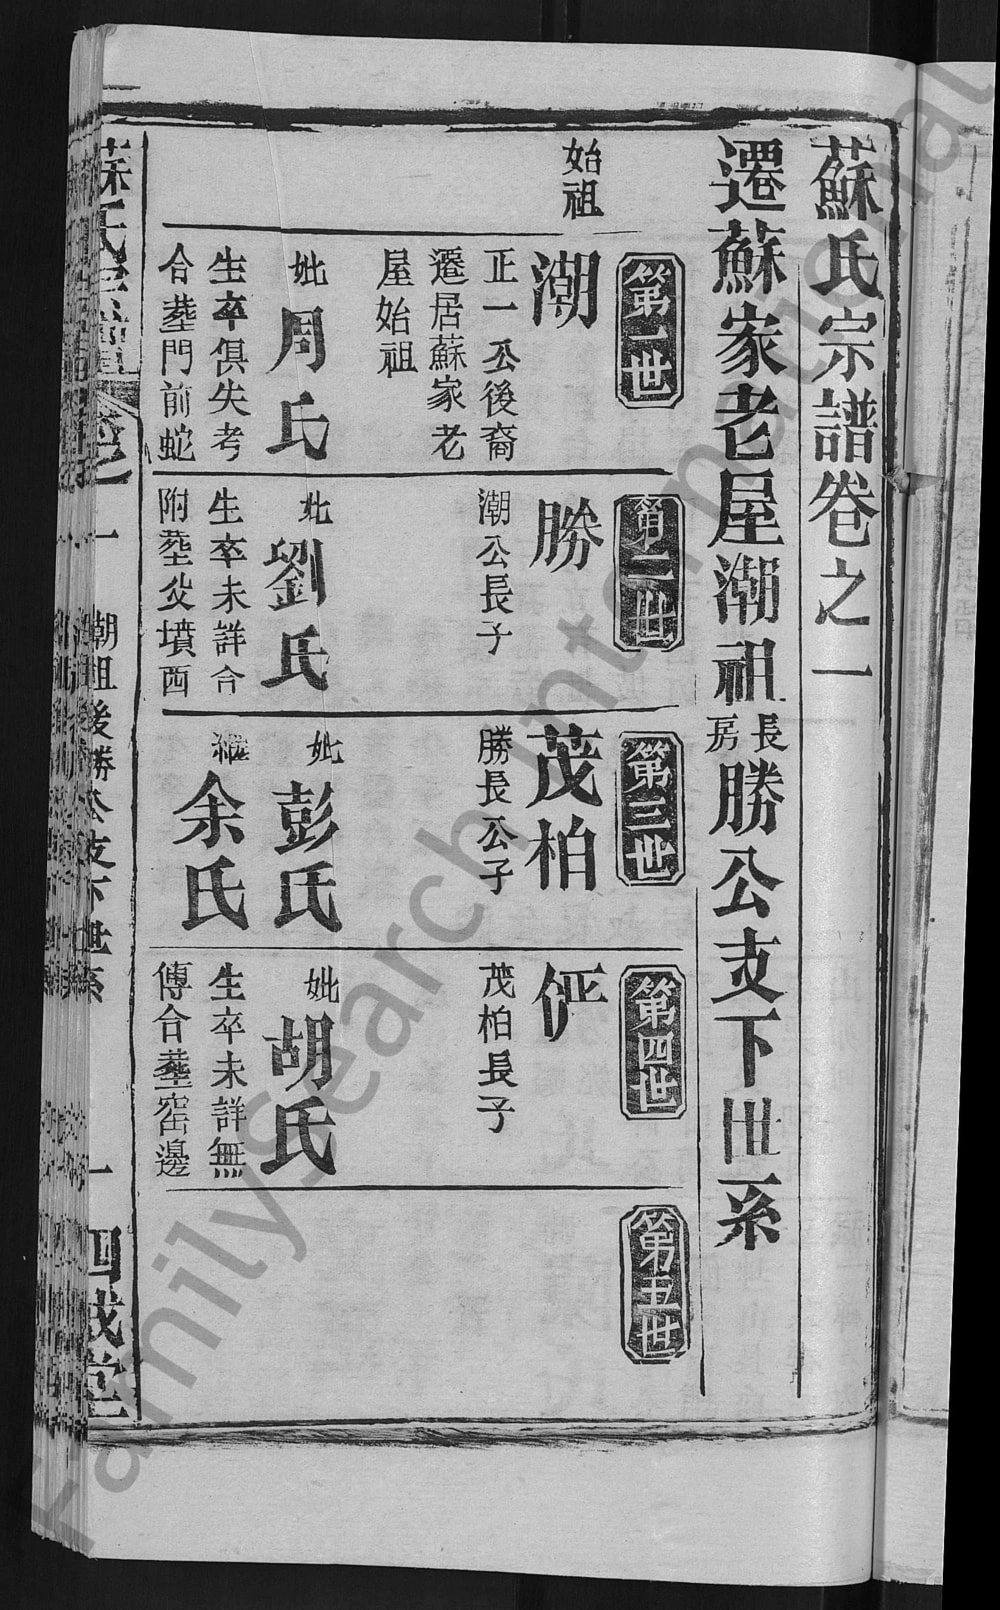 蘇氏宗譜卷之一
遷蘇家老屋潮祖長房勝公支下世系
始祖
第一世
潮
正一公後裔
遷居蘇家老
屋始祖
妣周氏
生卒俱失考
合塟門前蛇
第二世
勝
潮公長子
妣劉氏
生卒未詳合
附塟父墳西
第三世
茂柏
勝長公子
妣彭氏
繼余氏
第四世
茂柏長子
妣胡氏
生卒未詳無
傳合塟窑邊
第五世
潮祖後勝公支下世系
一
四成堂
FamilySearch International